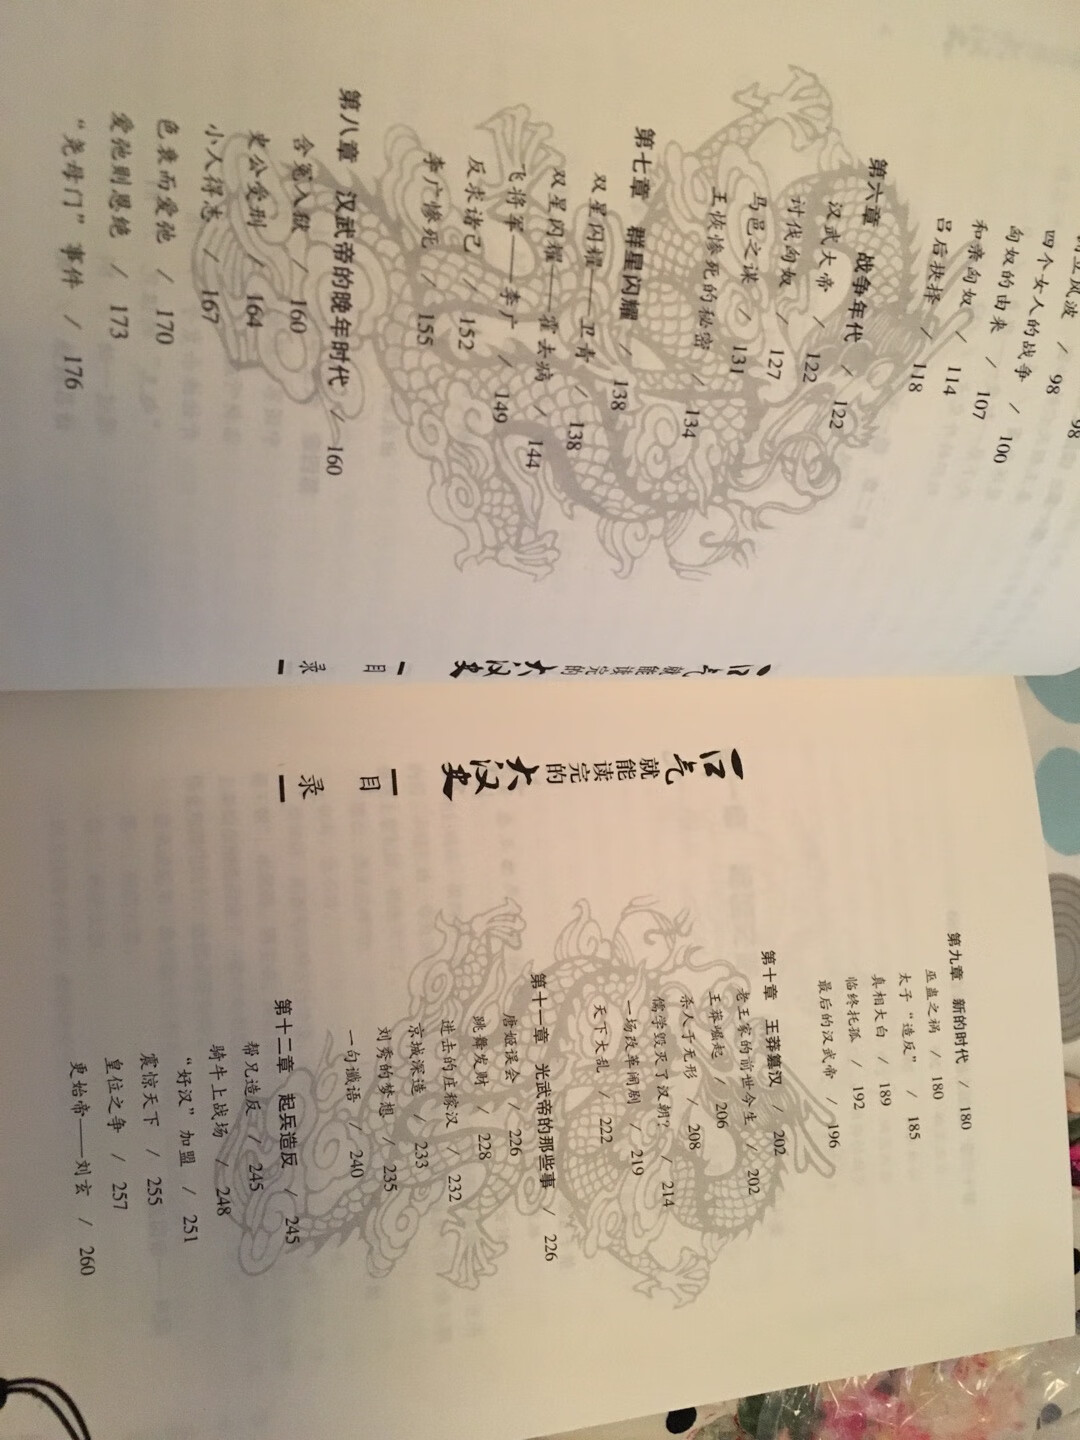 98
四个女人的战争 / 100
匈奴的由来 / 107
和亲匈奴 / 114
吕后抉择 / 118
第六章 战争年代 / 122
汉武大帝 / 122
讨伐匈奴 / 127
马邑之谋 / 131
王恢惨死的秘密 / 134
第七章 群星闪耀 / 138
双星闪耀——卫青 / 138
双星闪耀——霍去病 / 144
飞将军——李广 / 149
反求诸己 / 152
李广惨死 / 155
第八章 汉武帝的晚年时代 / 160
含冤入狱 / 160
史公受刑 / 164
小人得志 / 167
色衰而爱弛 / 170
爱弛则恩绝 / 173
“尧母门”事件 / 176
一口气就能读完的大汉史
目 录
一口气就能读完的大汉史
目 录
第九章 新的时代 / 180
巫蛊之祸 / 180
太子“造反” / 185
真相大白 / 189
临终托孤 / 192
最后的汉武帝 / 196
第十章 王莽篡汉 / 202
老王家的前世今生 / 202
王莽崛起 / 206
杀人于无形 / 208
儒学毁灭了汉朝? / 214
一场改革闹剧 / 219
天下大乱 / 222
第十一章 光武帝的那些事 / 226
唐姬溪会 / 226
跳舞发财 / 228
进击的庄稼汉 / 232
京城深造 / 233
刘秀的梦想 / 235
一句谶语 / 240
第十二章 起兵造反 / 245
帮兄造反 / 245
骑牛上战场 / 248
“好汉”加盟 / 251
震惊天下 / 255
皇位之争 / 257
更始帝——刘玄 / 260